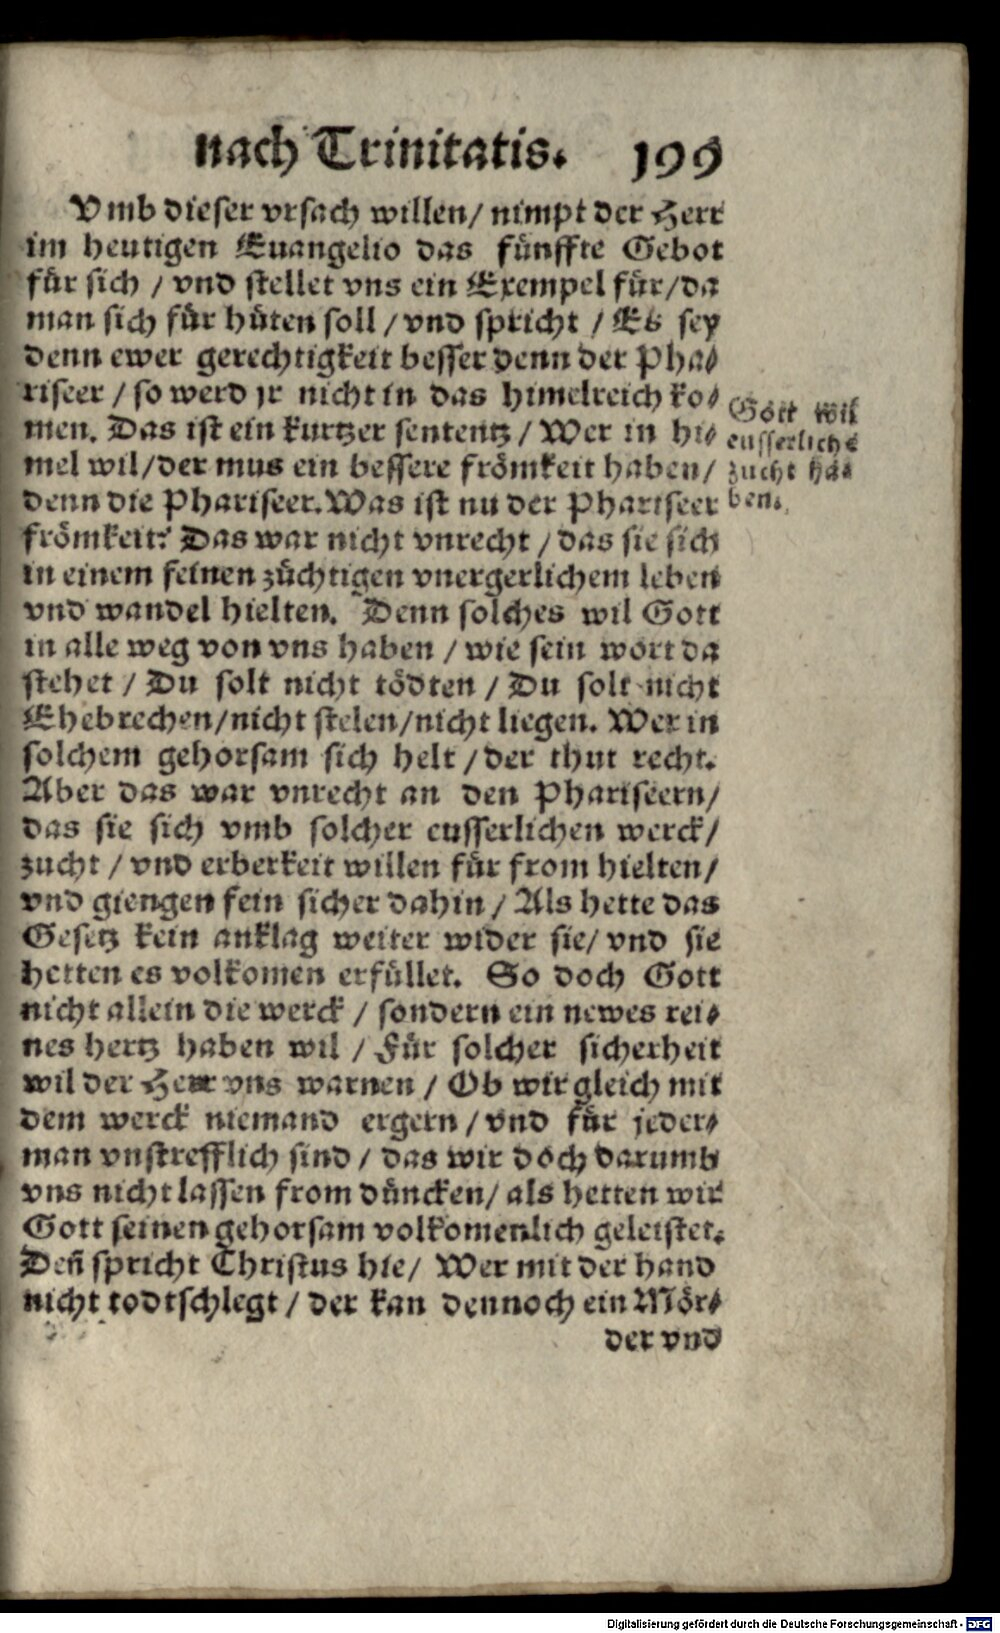 nach Trinitatis. 199
Vmb dieser vrsach willen/ nimpt der Herr
im heutigen Euangelio das fünffte Gebot
für sich / vnd stellet vns ein Exempel für/da
man sich für hüten soll / vnd spricht / Es sey
denn ewer gerechtigkeit besser denn der Pha-
riseer / so werd jr nicht in das himelreich ko-
men. Das ist ein kurtzer sententz / Wer in hi-
mel wil/der mus ein bessere frömkeit haben/
denn die Phariseer. Was ist nu der Phariseer
frömkeit? Das war nicht vnrecht / das sie sich
in einem feinen züchtigen vnergerlichem leben
vnd wandel hielten. Denn solches wil Gott
in alle weg von vns haben / wie sein wort da
stehet / Du solt nicht tödten / Du solt nicht
Ehebrechen/nicht stelen/nicht liegen. Wer in
solchem gehorsam sich helt / der thut recht.
Aber das war vnrecht an den Phariseern/
das sie sich vmb solcher eusserlichen werck/
zucht / vnd erberkeit willen für from hielten/
vnd giengen fein sicher dahin / Als hette das
Gesetz kein anklag weiter wider sie/ vnd sie
hetten es volkomen erfüllet. So doch Gott
nicht allein die werck / sondern ein newes rei-
nes hertz haben wil / Für solcher sicherheit
wil der Herr vns warnen / Ob wir gleich mit
dem werck niemand ergern / vnd für jeder-
man vnstrefflich sind / das wir doch darumb
vns nicht lassen from düncken/ als hetten wir
Gott seinen gehorsam volkomenlich geleistet.
Deñ spricht Christus hie/ Wer mit der hand
nicht todtschlegt / der kan dennoch ein Mör-
der vnd
Gott wil
eusserliche
zucht ha-
ben.
Digitalisierung gefördert durch die Deutsche Forschungsgemeinschaft - DFG